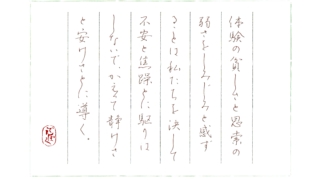 体験の貧しさと思索の
弱さをしみじみと感ず
ることは私たちを決して
不安と焦躁とに駆りは
しないで、かえって静けさ
と安けさとに導く。